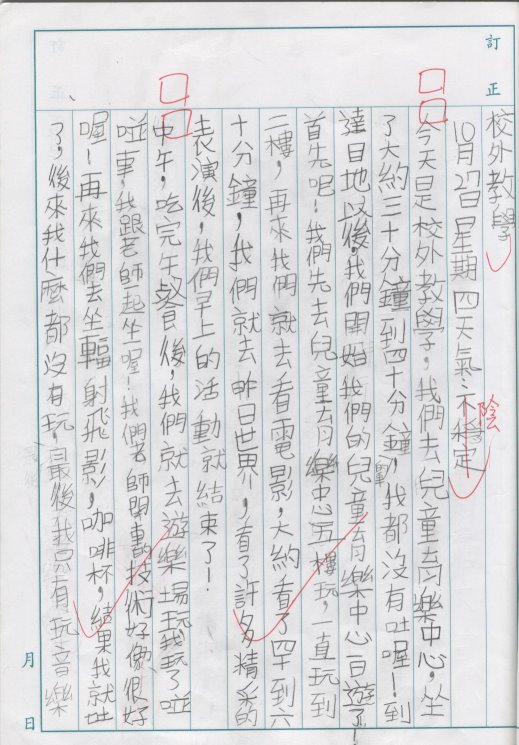 訂正
校外教學
10月27日星期四天氣：不穩定
陰
今天是校外教學，我們去兒童育樂中心，坐
了大約三十分鐘到四十分鐘，我都沒有吐喔！到
達目地以後，我們開始我們的兒童育樂中心一日遊了！
首先呢！我們先去兒童育樂中心五樓玩，一直玩到
二樓，再來我們就去看電影，大約看了四十到六
十分鐘，我們就去昨日世界，看了許多精采的
表演後，我們早上的活動就結束了！
中午，吃完午餐後，我們就去遊樂場玩，我玩了碰
碰車，我跟老師一起坐喔！我們老師開車的技術好像很好
喔！再來我們去坐輻射飛影，咖啡杯，結果我就吐
了，後來我什麼都沒有玩，最後我只有玩音樂
月 日